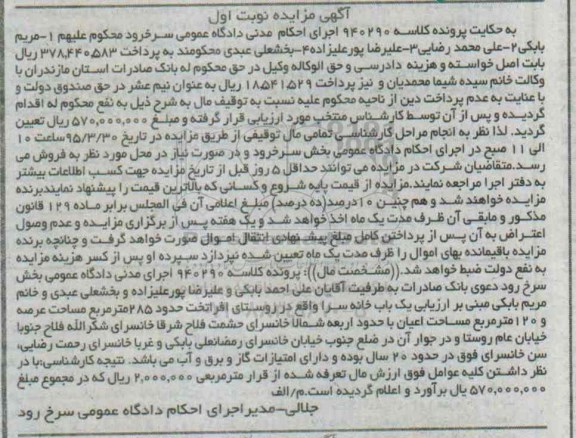 آگهی مزایده نوبت اول
به حکایت پرونده کلاسه ۹۴۰۲۹۰ اجرای احکام مدنی دادگاه عمومی سرخرود محکوم علیهم ۱-مریم
بابکی۲-علی محمد رضایی۳-علیرضا پورعلیزاده۴-بخشعلی عبدی محکومند به پرداخت ۳۷۸,۴۴۰,۵۸۳ ریال
بابت اصل خواسته و هزینه دادرسی و حق الوکاله وکیل در حق محکوم له بانک صادرات استان مازندران با
وکالت خانم سیده شیما محمدیان و نیز پرداخت ۱۸۵۴۱۵۲۹ ریال به عنوان نیم عشر در حق صندوق دولت و
با عنایت به عدم پرداخت دین از ناحیه محکوم علیه نسبت به توقیف مال به شرح ذیل به نفع محکوم له اقدام
گردیده و پس از آن توسط کارشناس منتخب مورد ارزیابی قرار گرفته و مبلغ ۵۷۰,۰۰۰,۰۰۰ ریال تعیین
گردید. لذا نظر به انجام مراحل کارشناسی تمامی مال توقیفی از طریق مزایده در تاریخ ۹۵/۳/۳۰ساعت ۱۰
الی ۱۱ صبح در اجرای احکام دادگاه عمومی بخش سرخرود و در صورت نیاز در محل مورد نظر به فروش می
رسد.متقاضیان شرکت در مزایده می توانند حداقل ۵ روز قبل از تاریخ مزایده جهت کسب اطلاعات بیشتر
به دفتر اجرا مراجعه نمایند.مزایده از قیمت پایه شروع و کسانی که بالاترین قیمت را پیشنهاد نمایندبرنده
مزایده خواهند شد و هم چنین ۱۰درصد(ده درصد) مبلغ اعلامی آن فی المجلس برابر ماده ۱۲۹ قانون
مذکور و مابقی آن ظرف مدت یک ماه اخذ خواهد شد و یک هفته پس از برگزاری مزایده و عدم وصول
اعتراض به آن پس از پرداختن کامل مبلغ پیشنهادی انتقال اموال صورت خواهد گرفت و چنانچه برنده
مزایده باقیمانده بهای اموال را ظرف مدت یک ماه تعیین شده نپردازد سپرده او پس از کسر هزینه مزایده
به نفع دولت ضبط خواهد شد.((مشخصت مال)): پرونده کلاسه ۹۴۰۲۹۰ اجرای مدنی دادگاه عمومی بخش
سرخ رود دعوی بانک صادرات به طرفیت آقایان علی احمد بابکی و علیرضا پورعلیزاده و بخشعلی عبدی و خانم
مریم بابکی مبنی بر ارزیابی یک باب خانه سرا واقع در روستای افراتخت حدود ۲۸۵مترمربع مساحت عرصه
و ۱۲۰مترمربع مساحت اعیان با حدود اربعه شمالا خانسرای حشمت فلاح شرقا خانسرای شکرالله فلاح جنوبا
خیابان عام روستا و در جوار آن در ضلع جنوب خیابان خانسرای رمضانعلی بابکی و غربا خانسرای رحمت رضایی،
سن خانسرای فوق در حدود ۲۰ سال بوده و دارای امتیازات گاز و برق و آب می باشد. نتیجه کارشناسی،با در
نظر داشتن کلیه عوامل فوق ارزش مال تعرفه شده از قرار مترمربعی ۲,۰۰۰,۰۰۰ ریال که در مجموع مبلغ
۵۷۰,۰۰۰,۰۰۰ ریال برآورد و اعلام گردیده است.م/الف
جلالی-مدیراجرای احکام دادگاه عمومی سرخ رود